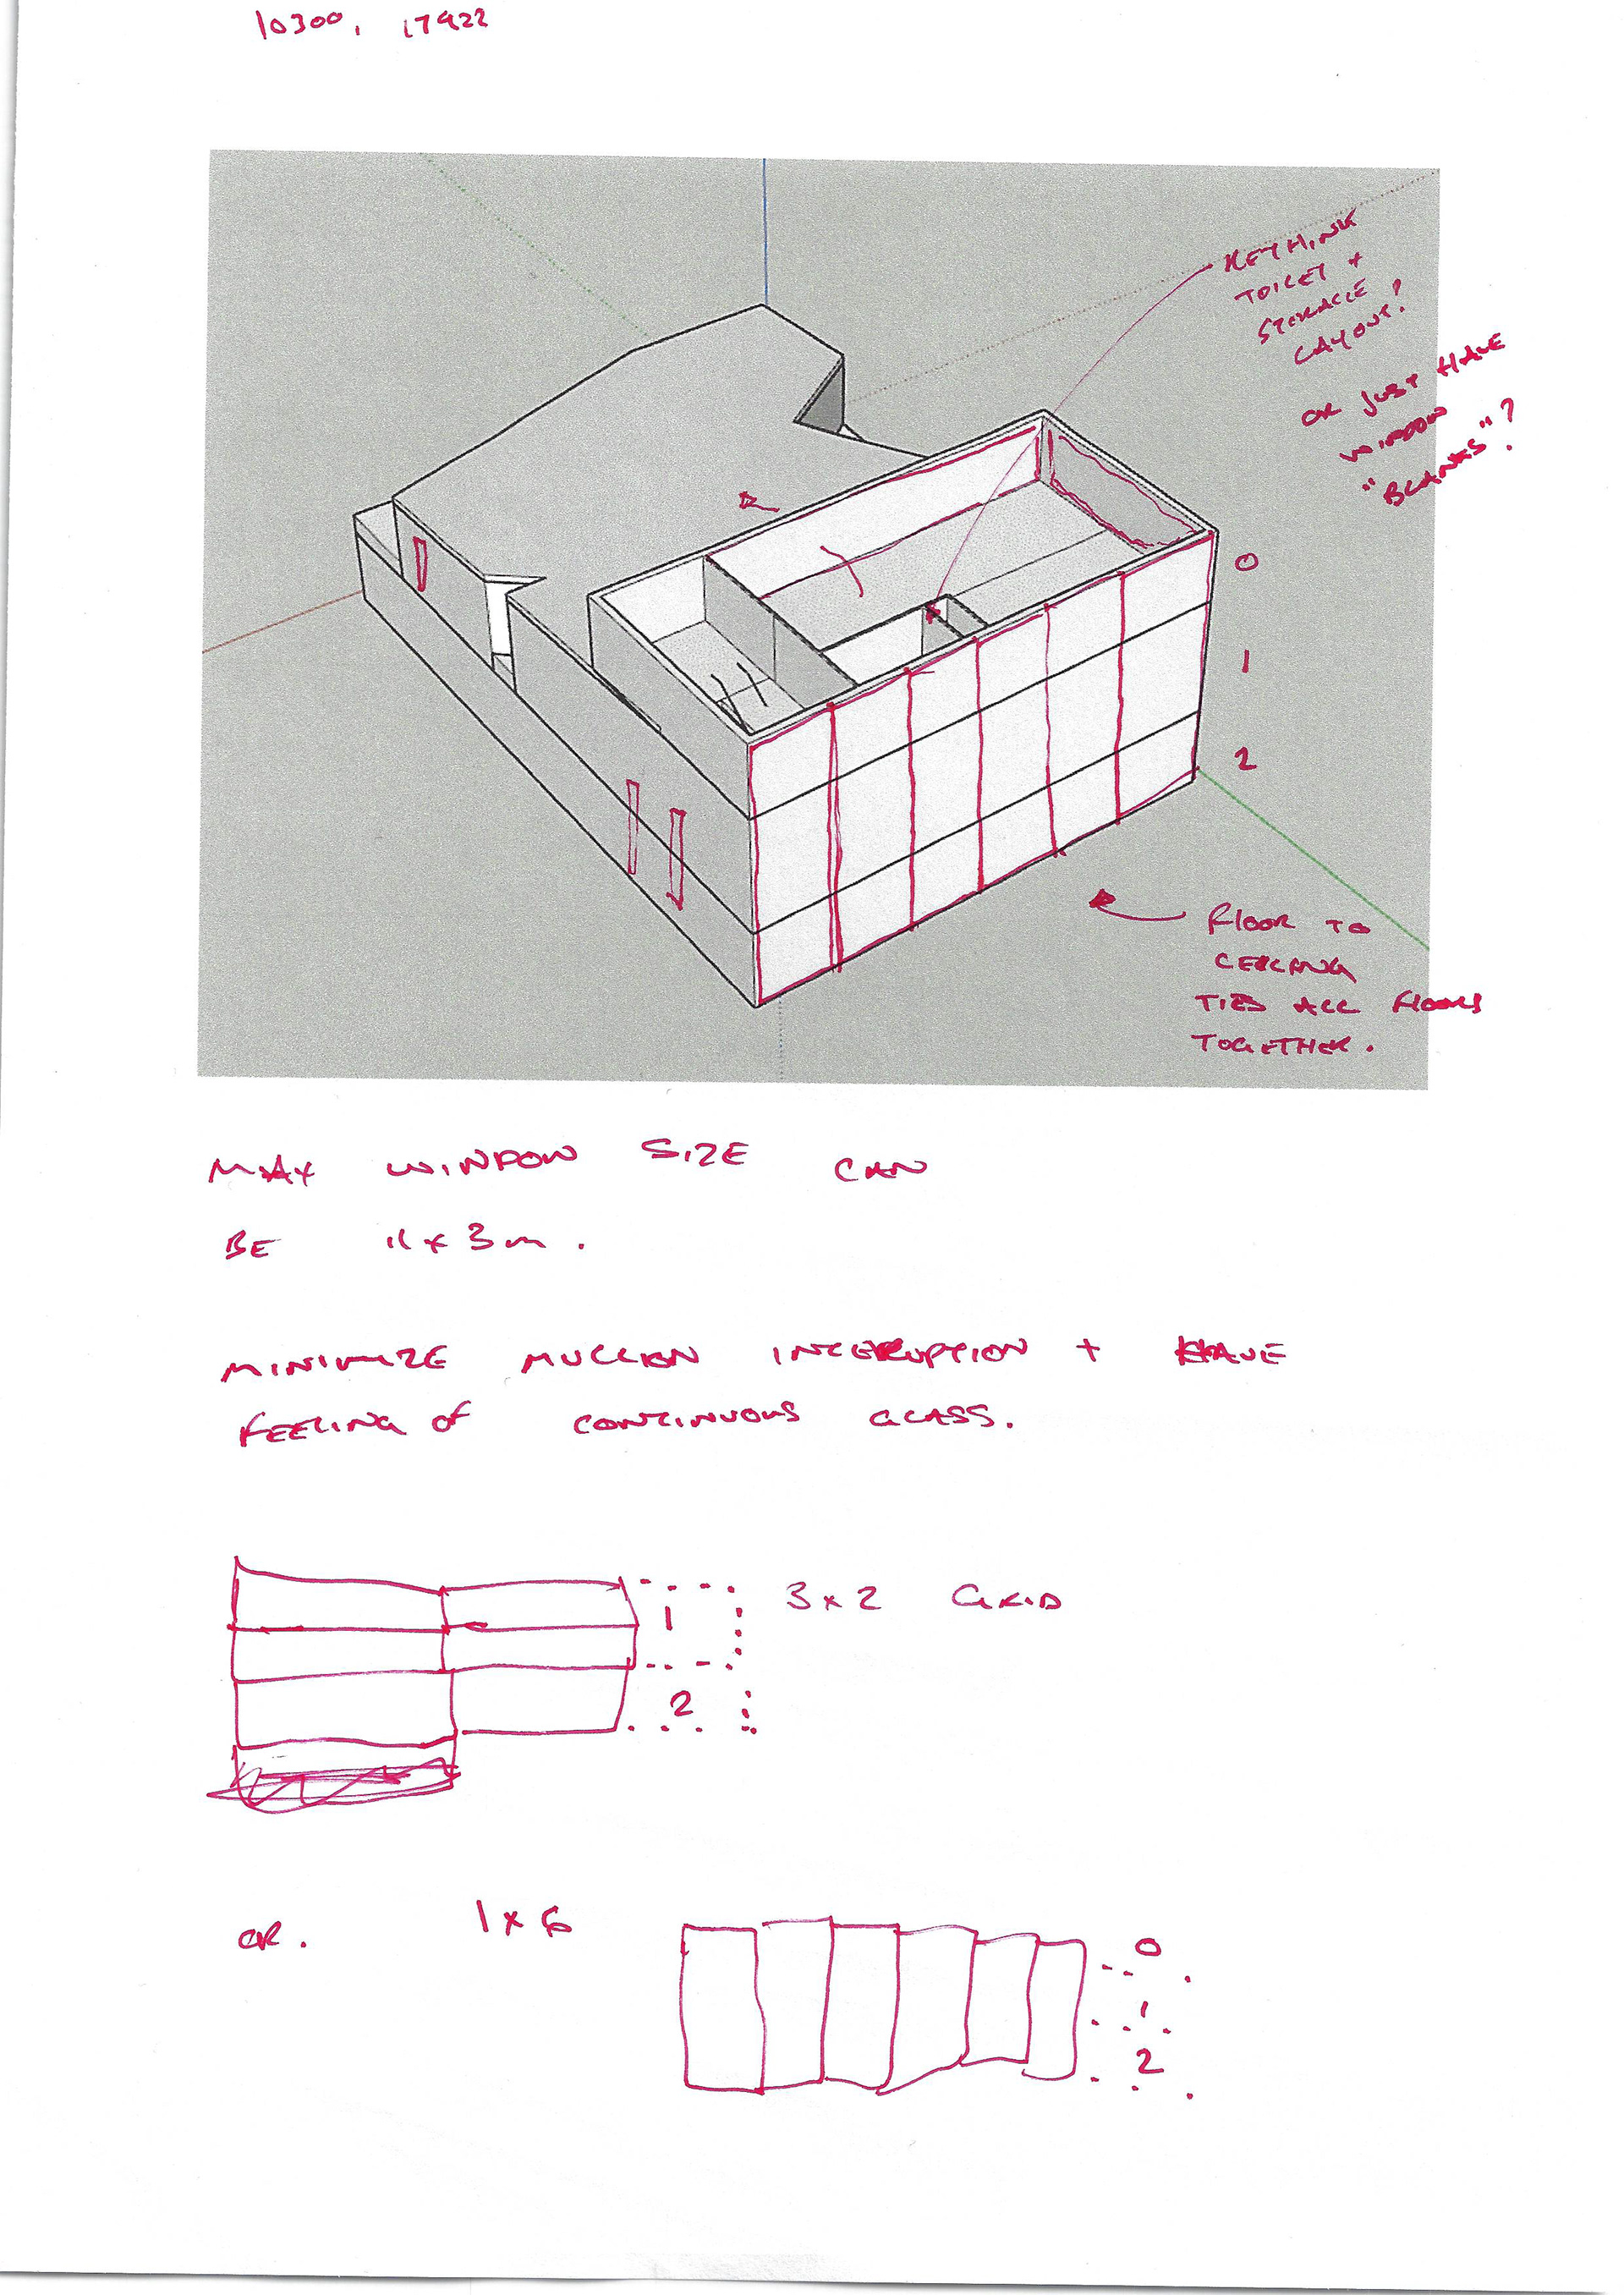 10300, 17922
RETHINK
TOILET +
STORAGE
LAYOUT?
OR JUST HAVE
WINDOW
"BLANKS"?
0
1
2
FLOOR TO
CEILING
TIES ALL FLOORS
TOGETHER.
MAX WINDOW SIZE CAN
BE 11x3m.
MINIMIZE MULLION INTERRUPTION + HAVE
FEELING OF CONTINUOUS GLASS.
1
3x2 GRID
2
OR. 1x6
0
1
2